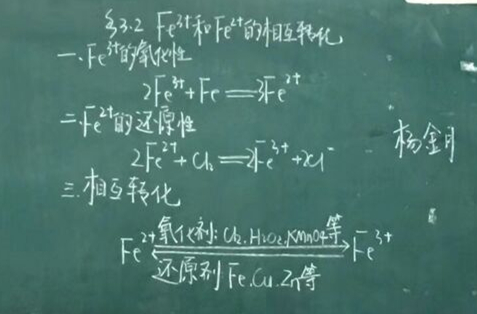 §3.2 Fe³⁺和Fe²⁺的相互转化
一.Fe³⁺的氧化性
2Fe³⁺+Fe══3Fe²⁺
二.Fe²⁺的还原性
2Fe²⁺+Cl₂══2Fe³⁺+2Cl⁻
杨金月
三.相互转化
Fe²⁺ 氧化剂:Cl₂.H₂O₂.KMnO₄等 Fe³⁺
还原剂 Fe.Cu.Zn等